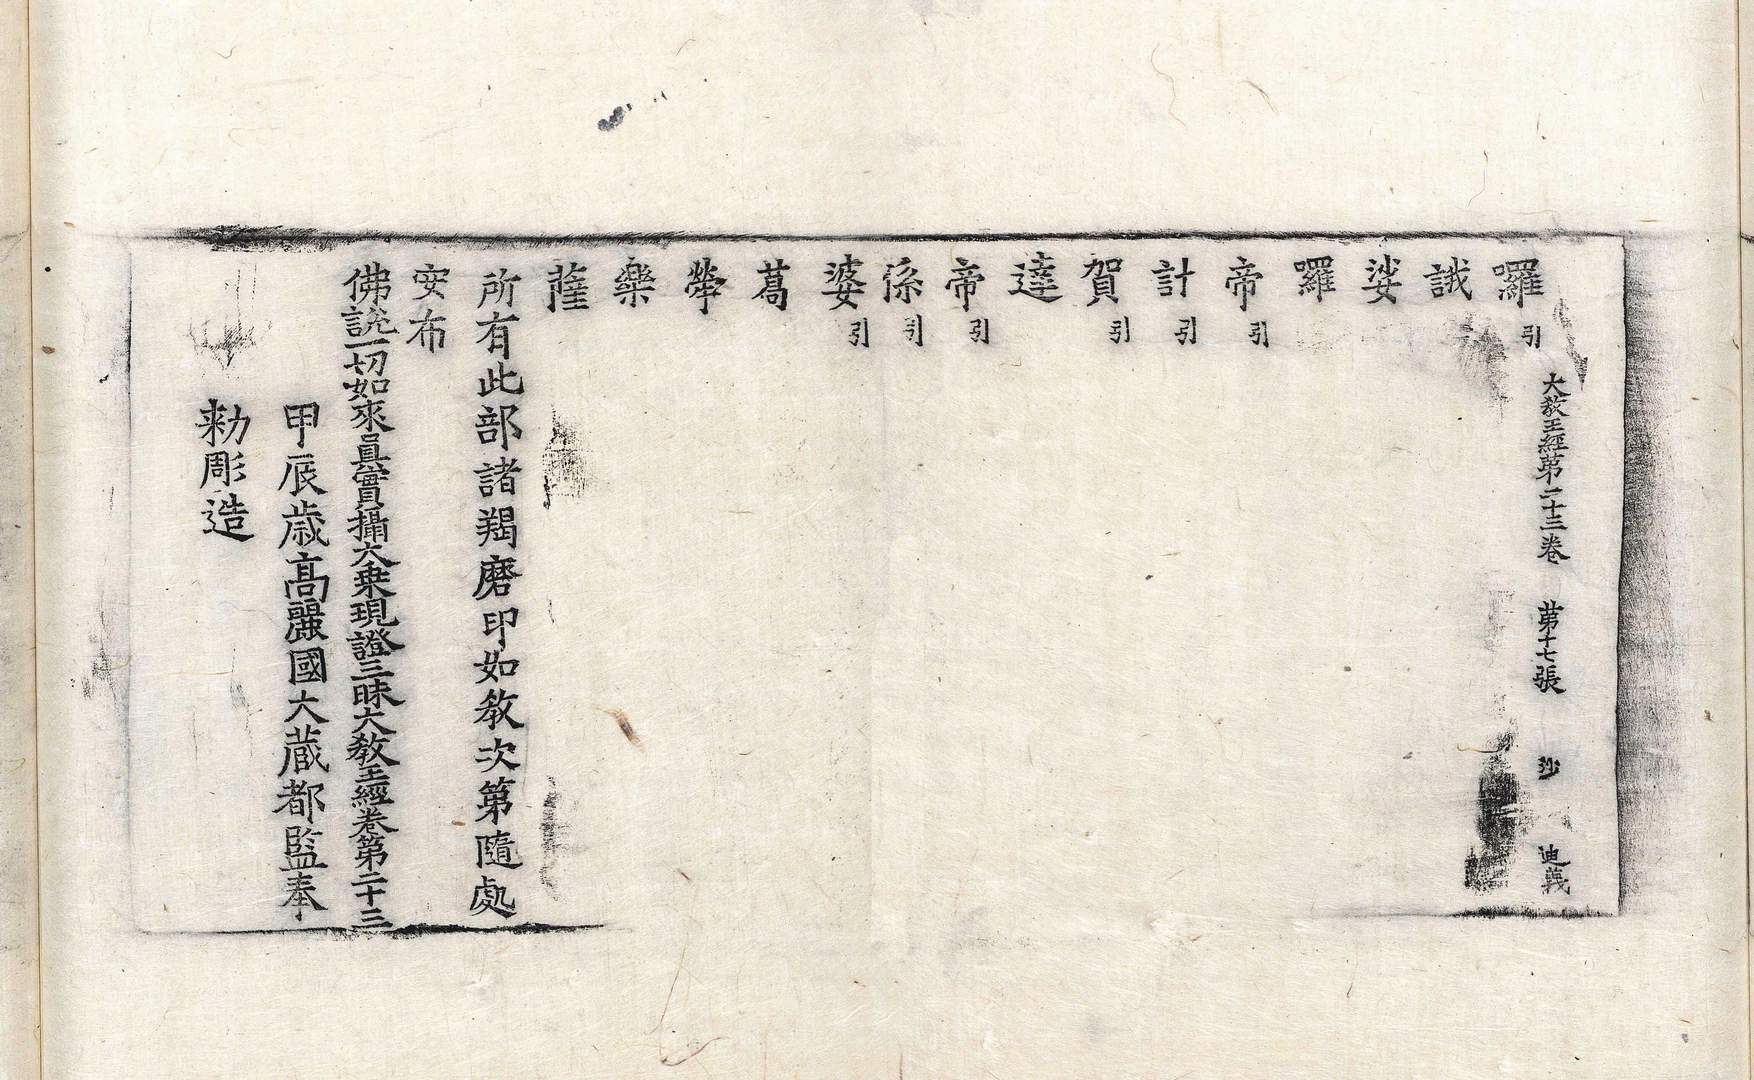 大教王經第二十三卷 第十七張 沙 迪義
囉引
誐
娑
囉
帝引
計引
賀引
達
帝引
係引
婆引
葛
欒
薩
所有此部諸羯磨印如教次第隨處
安布
佛說一切如來眞實攝大乘現證三昧大教王經卷第二十三
甲辰歲高麗國大藏都監奉
勑彫造